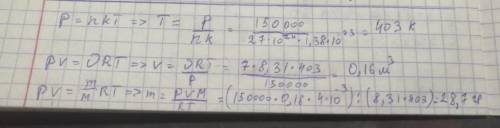 P = nkT => T = P/nk = 150000/27·10²⁴·1,38·10²³ = 403 K
PV = ϑRT => V = ϑRT/P = 7·8,31·403/150000 = 0,16 м³
PV = m/M RT => m = PVM/RT = (150000·0,16·4·10⁻³):(8,31·403)=28,7г